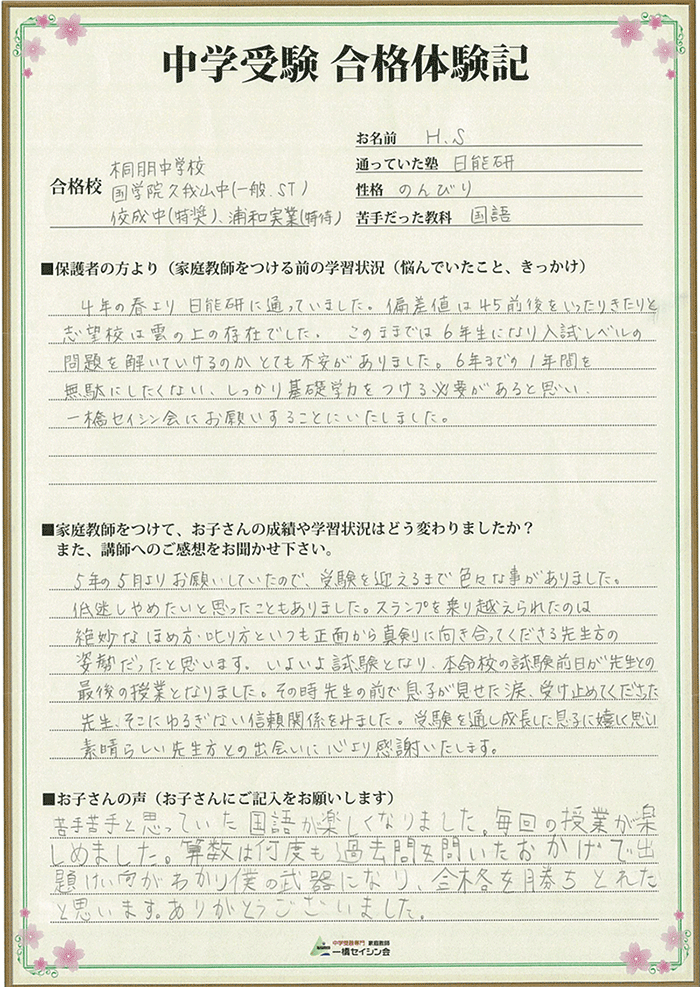 中学受験 合格体験記
お名前 H.S
通っていた塾 日能研
性格 のんびり
苦手だった教科 国語
合格校
桐朋中学校
国学院久我山中(一般、ST)
佼成中(特奨)、浦和実業(特待)
■保護者の方より（家庭教師をつける前の学習状況（悩んでいたこと、きっかけ）
4年の春より日能研に通っていました。偏差値は45前後をいったりきたりと
志望校は雲の上の存在でした。 このままでは6年生になり入試レベルの
問題を解いていけるのかとても不安がありました。6年までの1年間を
無駄にしたくない、しっかり基礎学力をつける必要があると思い、
一橋セイシン会にお願いすることにいたしました。
■家庭教師をつけて、お子さんの成績や学習状況はどう変わりましたか？
また、講師へのご感想をお聞かせ下さい。
5年の5月よりお願いしていたので、受験を迎えるまで色々な事がありました。
低迷しやめたいと思ったこともありました。スランプを乗り越えられたのは
絶妙なほめ方・叱り方といつも正面から真剣に向き合ってくださる先生方の
姿勢だったと思います。いよいよ試験となり、本命校の試験前日が先生との
最後の授業となりました。その時先生の前で息子が見せた涙、受け止めてくださった
先生、そこにゆるぎない信頼関係をみました。受験を通し成長した息子に嬉しく思い
素晴らしい先生方との出会いに心より感謝いたします。
■お子さんの声（お子さんにご記入をお願いします）
苦手苦手と思っていた国語が楽しくなりました。毎回の授業が楽
しめました。算数は何度も過去問を問いたおかげで出
題けい向がわかり僕の武器になり、合格を勝ちとれた
と思います。ありがとうございました。
中学受験専門 家庭教師
一橋セイシン会